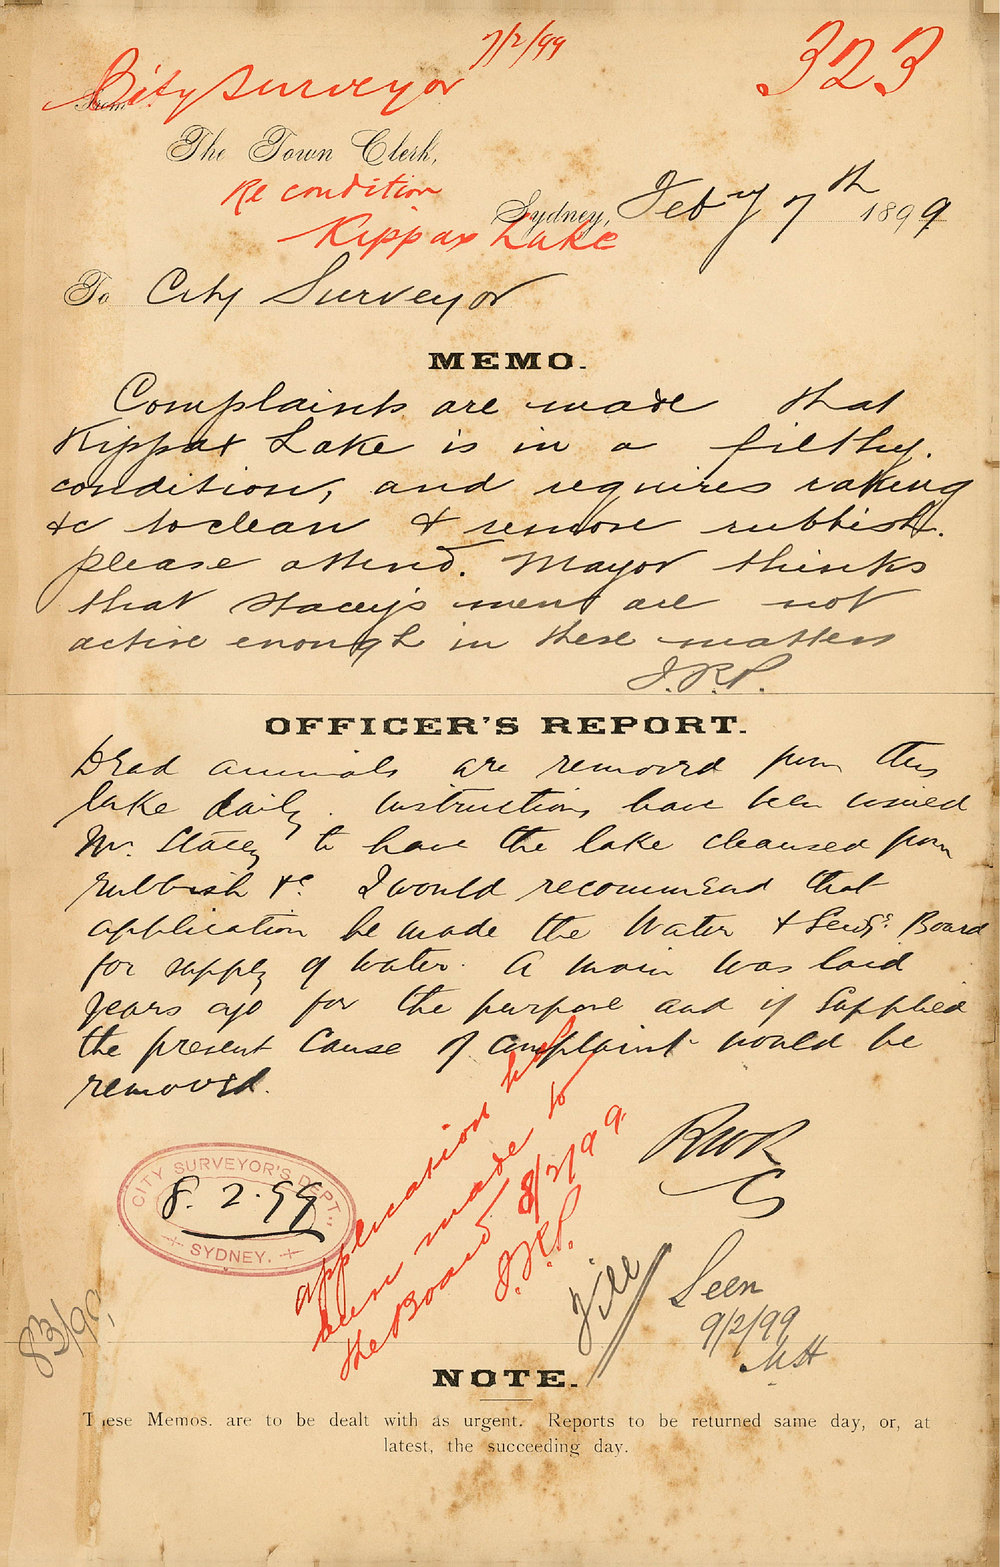 7/2/99
323
City Surveyor
From
The Town Clerk,
Re condition
Kippax Lake
Sydney, Feby 7th 1899
To City Surveyor
MEMO.
Complaints are made that
Kippax Lake is in a filthy
condition, and requires raking
&c to clean & remove rubbish.
please attend. Mayor thinks
that Stacey's men are not
active enough in these matters
J.R.P.
OFFICER'S REPORT.
Dead animals are removed from this
lake daily. Instructions have been issued
Mr. Stacey to have the lake cleansed from
rubbish &c. I would recommend that
application be made the Water & Sewge Board
for supply of water. A main was laid
years ago for the purpose and if supplied
the present cause of complaint would be
removed.
RWR
CS
CITY SURVEYOR'S DEPT.,
8.2.99
SYDNEY.
application has
been made to
the Board 8/2/99
J.R.P.
File
Seen
9/2/99
MH
83/99
NOTE.
These Memos. are to be dealt with as urgent. Reports to be returned same day, or, at
latest, the succeeding day.